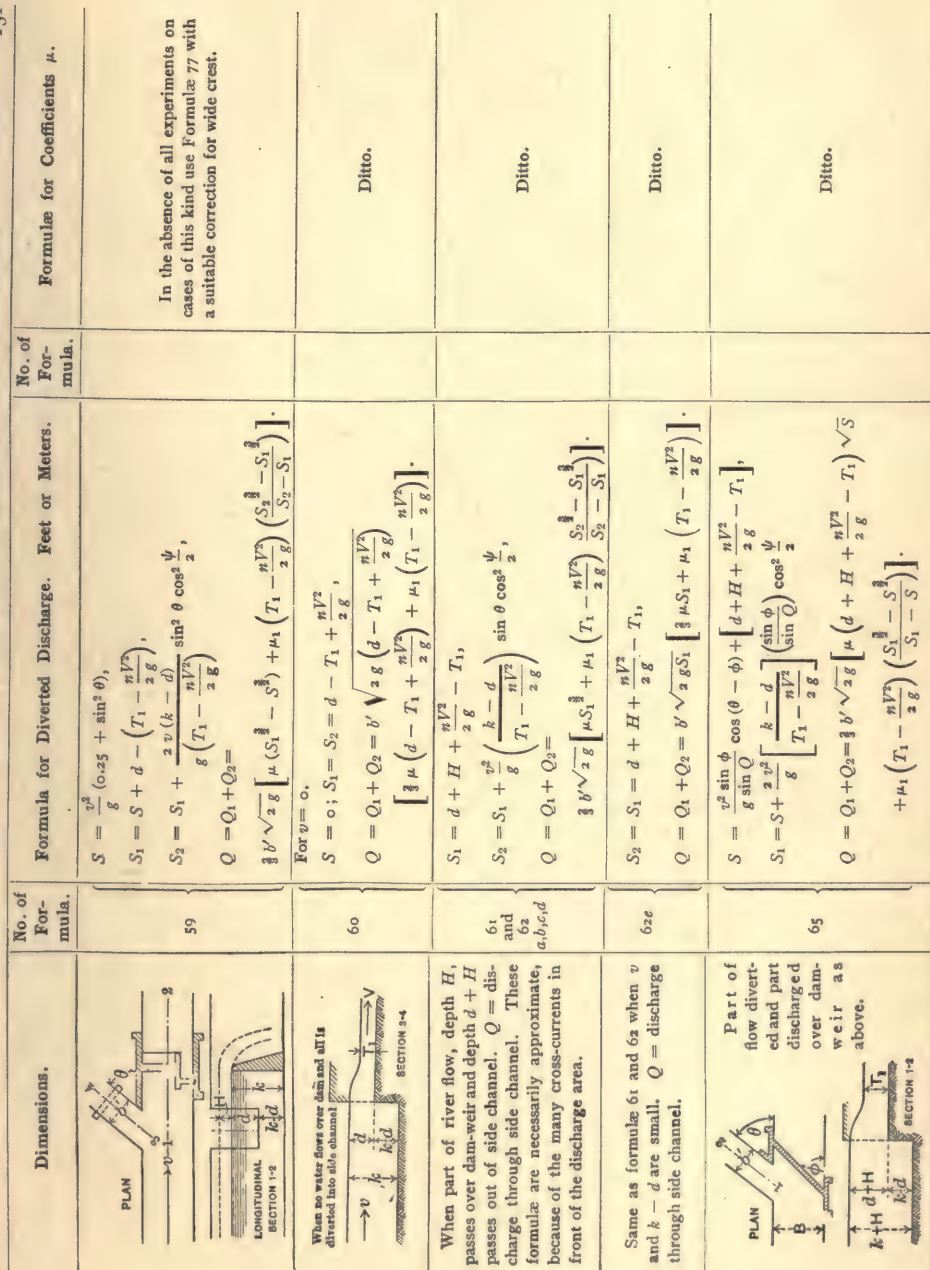 Dimensions.
No. of For-mula.
Formula for Diverted Discharge. Feet or Meters.
No. of For-mula.
Formulæ for Coefficients μ.
PLAN
v
1
2
3
4
θ
b'
LONGITUDINAL
SECTION 1-2
H
d
k
k-d
59
S = v²/g (0.25 + sin² θ),
S₁ = S + d − (T₁ − nV²/2g),
S₂ = S₁ + 2v(k − d)/g(T₁ − nV²/2g) sin² θ cos² ψ/2,
Q = Q₁+Q₂=
⅔ b'√2g [μ (S₁^3/2 − S^3/2) + μ₁ (T₁ − nV²/2g) (S₂^3/2 − S₁^3/2 / S₂ − S₁)].
In the absence of all experiments on
cases of this kind use Formulæ 77 with
a suitable correction for wide crest.
When no water flows over dam and all is
diverted into side channel
v
k
d
k-d
T₁
V
SECTION 3-4
60
For v = 0.
S = 0; S₁ = S₂ = d − T₁ + nV²/2g,
Q = Q₁ + Q₂ = b' √2g (d − T₁ + nV²/2g)
[⅔ μ (d − T₁ + nV²/2g) + μ₁ (T₁ − nV²/2g)].
Ditto.
When part of river flow, depth H,
passes over dam-weir and depth d + H
passes out of side channel. Q = dis-
charge through side channel. These
formulæ are necessarily approximate,
because of the many cross-currents in
front of the discharge area.
61
and
62
a,b,c,d
S₁ = d + H + nV²/2g − T₁,
S₂ = S₁ + v²/g (k − d / T₁ − nV²/2g) sin θ cos² ψ/2,
Q = Q₁ + Q₂ =
⅔ b'√2g [μS₁^3/2 + μ₁ (T₁ − nV²/2g) S₂^3/2 − S₁^3/2 / S₂ − S₁)].
Ditto.
Same as formulæ 61 and 62 when v
and k − d are small. Q = discharge
through side channel.
62e
S₂ = S₁ = d + H + nV²/2g − T₁,
Q = Q₁ + Q₂ = b'√2gS₁ [⅔ μS₁ + μ₁ (T₁ − nV²/2g)].
Ditto.
PLAN
B
θ
φ
Part of
flow divert-
ed and part
discharged
over dam-
weir as
above.
k+H
d+H
k-d
T₁
SECTION 1-2
65
S = v² sin φ / g sin Q cos (θ − φ) + [d+H + nV²/2g − T₁],
S₁ = S + 2v²/g [k − d / T₁ − nV²/2g] (sin φ / sin Q) cos² ψ/2
Q = Q₁+Q₂=⅔ b'√2g [μ (d + H + nV²/2g − T₁) √S
+ μ₁ (T₁ − nV²/2g) (S₁^3/2 − S^3/2 / S₁ − S)].
Ditto.